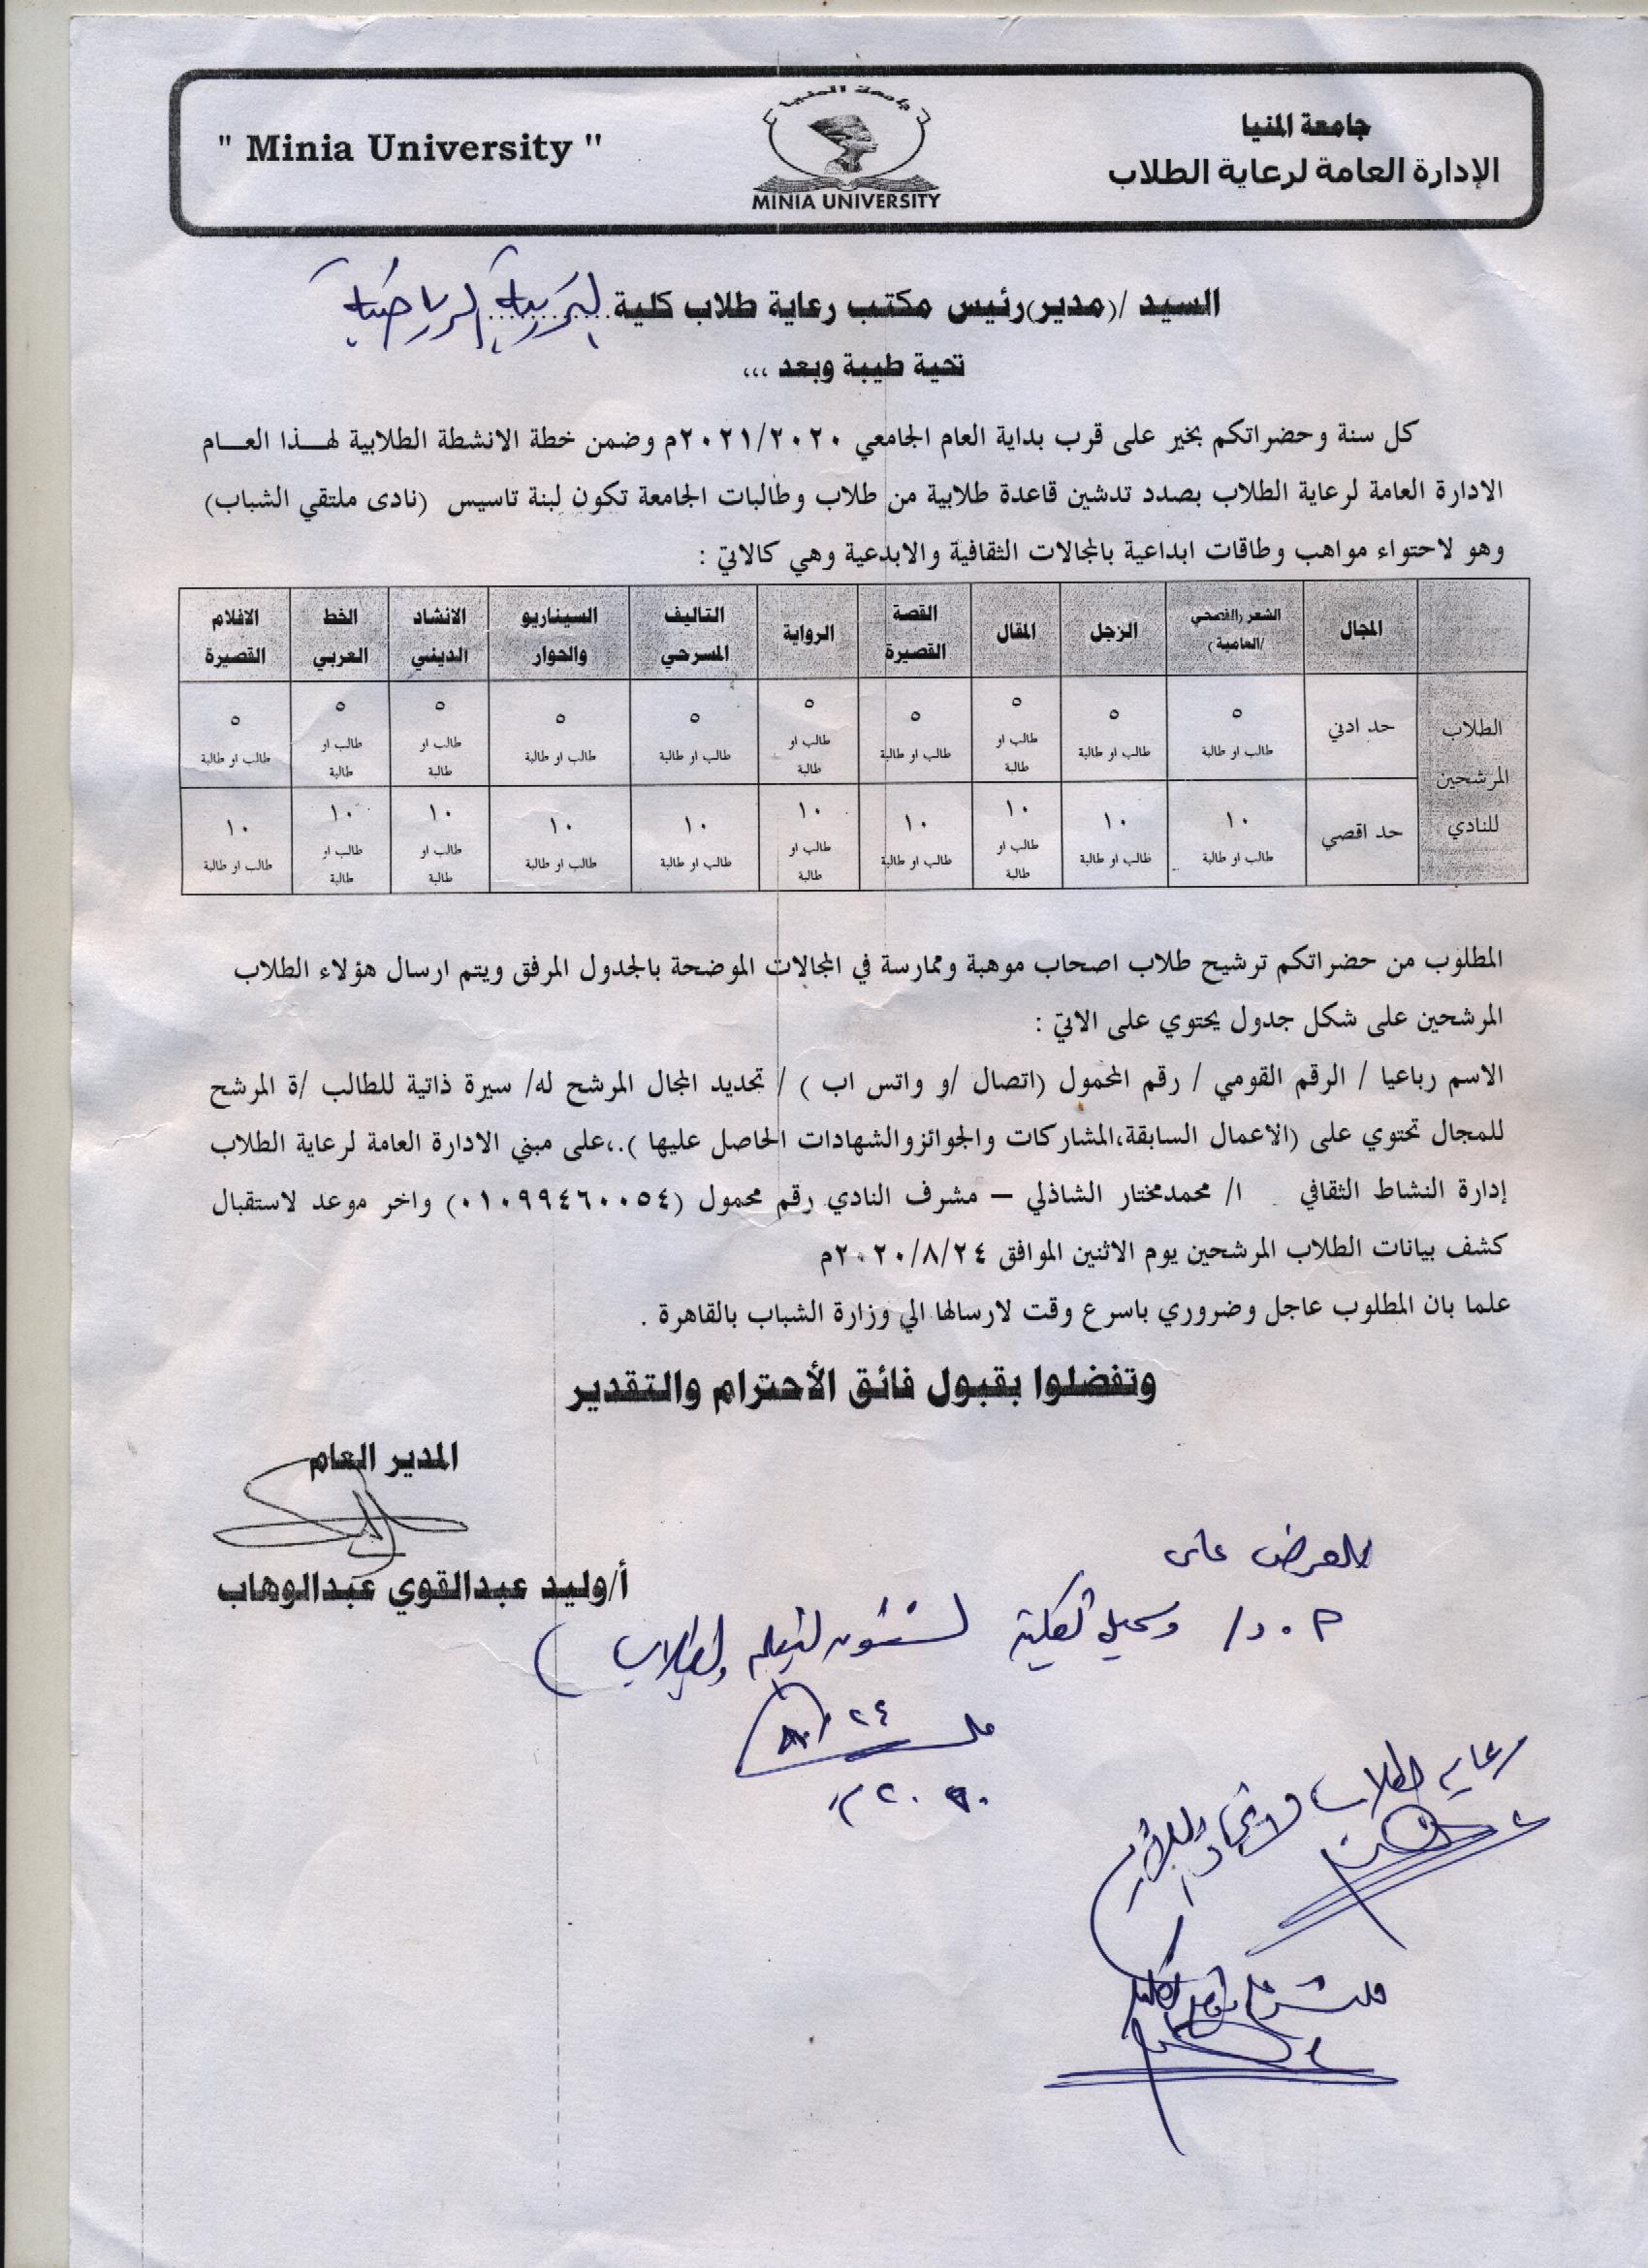 جامعة المنيا
الإدارة العامة لرعاية الطلاب
جامعة المنيا
MINIA UNIVERSITY
" Minia University "
السيد /(مدير)رئيس مكتب رعاية طلاب كلية............ التربية الرياضية
تحية طيبة وبعد ،،،
كل سنة وحضراتكم بخير على قرب بداية العام الجامعي ٢٠٢١/٢٠٢٠م وضمن خطة الانشطة الطلابية لهذا العام
الادارة العامة لرعاية الطلاب بصدد تدشين قاعدة طلابية من طلاب وطالبات الجامعة تكون لبنة تاسيس (نادى ملتقي الشباب)
وهو لاحتواء مواهب وطاقات ابداعية بالمجالات الثقافية والابدعية وهي كالاتي :
المجال | الشعر (الفصحي /العامية) | الزجل | المقال | القصة القصيرة | الرواية | التاليف المسرحي | السيناريو والحوار | الانشاد الديني | الخط العربي | الافلام القصيرة
الطلاب المرشحين للنادي
حد ادني | ٥ طالب او طالبة | ٥ طالب او طالبة | ٥ طالب او طالبة | ٥ طالب او طالبة | ٥ طالب او طالبة | ٥ طالب او طالبة | ٥ طالب او طالبة | ٥ طالب او طالبة | ٥ طالب او طالبة | ٥ طالب او طالبة
حد اقصي | ١٠ طالب او طالبة | ١٠ طالب او طالبة | ١٠ طالب او طالبة | ١٠ طالب او طالبة | ١٠ طالب او طالبة | ١٠ طالب او طالبة | ١٠ طالب او طالبة | ١٠ طالب او طالبة | ١٠ طالب او طالبة | ١٠ طالب او طالبة
المطلوب من حضراتكم ترشيح طلاب اصحاب موهبة وممارسة في المجالات الموضحة بالجدول المرفق ويتم ارسال هؤلاء الطلاب
المرشحين على شكل جدول يحتوي على الاتي :
الاسم رباعيا / الرقم القومي / رقم المحمول (اتصال /و واتس اب ) / تحديد المجال المرشح له/ سيرة ذاتية للطالب /ة المرشح
للمجال تحتوي على (الاعمال السابقة،المشاركات والجوائزوالشهادات الحاصل عليها ).،على مبني الادارة العامة لرعاية الطلاب
إدارة النشاط الثقافي ا/ محمدمختار الشاذلي – مشرف النادي رقم محمول (٠١٠٩٩٤٦٠٠٥٤) واخر موعد لاستقبال
كشف بيانات الطلاب المرشحين يوم الاثنين الموافق ٢٠٢٠/٨/٢٤م
علما بان المطلوب عاجل وضروري باسرع وقت لارسالها الي وزارة الشباب بالقاهرة .
وتفضلوا بقبول فائق الأحترام والتقدير
المدير العام
أ/وليد عبدالقوي عبدالوهاب
للعرض على
م.د/ وكيل الكلية لشئون التعليم والطلاب
٢٤
رعاية الطلاب واتحاد الطلاب